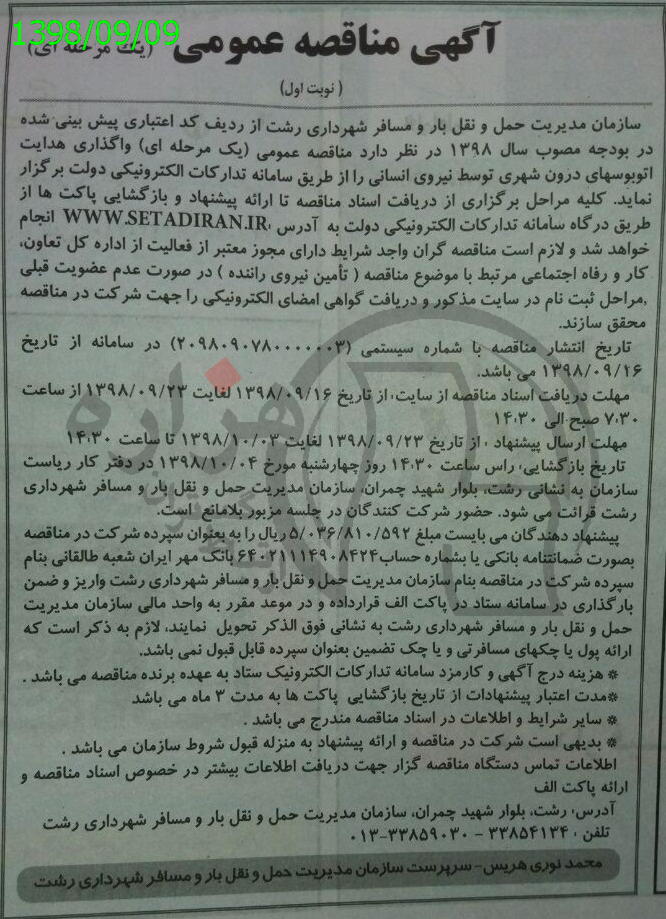 1398/09/09
آگهی مناقصه عمومی (یک مرحله ای)
( نوبت اول)
سازمان مدیریت حمل و نقل بار و مسافر شهرداری رشت از ردیف کد اعتباری پیش بینی شده
در بودجه مصوب سال ۱۳۹۸ در نظر دارد مناقصه عمومی (یک مرحله ای) واگذاری هدایت
اتوبوسهای درون شهری توسط نیروی انسانی را از طریق سامانه تدارکات الکترونیکی دولت برگزار
نماید. کلیه مراحل برگزاری از دریافت اسناد مناقصه تا ارائه پیشنهاد و بازگشایی پاکت ها از
طریق درگاه سامانه تدارکات الکترونیکی دولت به آدرس WWW.SETADIRAN.IR انجام
خواهد شد و لازم است مناقصه گران واجد شرایط دارای مجوز معتبر از فعالیت از اداره کل تعاون،
کار و رفاه اجتماعی مرتبط با موضوع مناقصه ( تأمین نیروی راننده ) در صورت عدم عضویت قبلی
,مراحل ثبت نام در سایت مذکور و دریافت گواهی امضای الکترونیکی را جهت شرکت در مناقصه
محقق سازند.
تاریخ انتشار مناقصه با شماره سیستمی (۲۰۹۸۰۹۰۷۸۰۰۰۰۰۰۳) در سامانه از تاریخ
۱۳۹۸/۰۹/۱۶ می باشد.
مهلت دریافت اسناد مناقصه از سایت، از تاریخ ۱۳۹۸/۰۹/۱۶ لغایت ۱۳۹۸/۰۹/۲۳ از ساعت
۷:۳۰ صبح الی ۱۴:۳۰
مهلت ارسال پیشنهاد ، از تاریخ ۱۳۹۸/۰۹/۲۳ لغایت ۱۳۹۸/۱۰/۰۳ تا ساعت ۱۴:۳۰
تاریخ بازگشایی، راس ساعت ۱۴:۳۰ روز چهارشنبه مورخ ۱۳۹۸/۱۰/۰۴ در دفتر کار ریاست
سازمان به نشانی رشت، بلوار شهید چمران، سازمان مدیریت حمل و نقل بار و مسافر شهرداری
رشت قرائت می شود. حضور شرکت کنندگان در جلسه مزبور بلامانع است.
پیشنهاد دهندگان می بایست مبلغ ۵/۰۳۶/۸۱۰/۵۹۲ ریال را به بعنوان سپرده شرکت در مناقصه
بصورت ضمانتنامه بانکی یا بشماره حساب ۶۴۰۲۱۱۱۴۹۰۸۴۲۴ بانک مهر ایران شعبه طالقانی بنام
سپرده شرکت در مناقصه بنام سازمان مدیریت حمل و نقل بار و مسافر شهرداری رشت واریز و ضمن
بارگذاری در سامانه ستاد در پاکت الف قرارداده و در موعد مقرر به واحد مالی سازمان مدیریت
حمل و نقل بار و مسافر شهرداری رشت به نشانی فوق الذکر تحویل نمایند، لازم به ذکر است که
ارائه پول یا چکهای مسافرتی و یا چک تضمین بعنوان سپرده قابل قبول نمی باشد.
* هزینه درج آگهی و کارمزد سامانه تدارکات الکترونیک ستاد به عهده برنده مناقصه می باشد .
*مدت اعتبار پیشنهادات از تاریخ بازگشایی پاکت ها به مدت ۳ ماه می باشد
* سایر شرایط و اطلاعات در اسناد مناقصه مندرج می باشد .
* بدیهی است شرکت در مناقصه و ارائه پیشنهاد به منزله قبول شروط سازمان می باشد .
اطلاعات تماس دستگاه مناقصه گزار جهت دریافت اطلاعات بیشتر در خصوص اسناد مناقصه و
ارائه پاکت الف
آدرس، رشت، بلوار شهید چمران، سازمان مدیریت حمل و نقل بار و مسافر شهرداری رشت
تلفن ، ۳۳۸۵۴۱۳۴ - ۳۳۸۵۹۰۳۰-۰۱۳
محمد نوری هریس- سرپرست سازمان مدیریت حمل و نقل بار و مسافر شهرداری رشت
هزاره